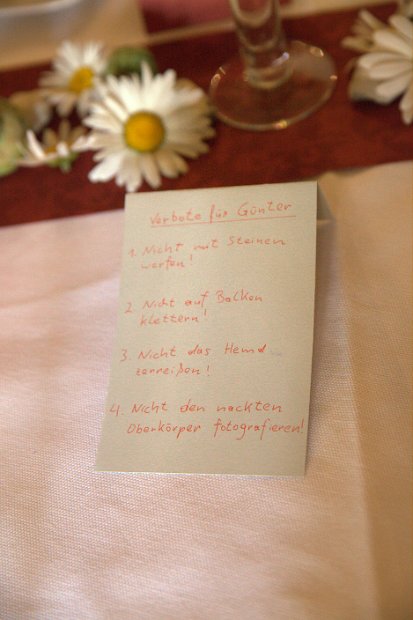 Verbote für Günter
1. Nicht mit Steinen
werfen!
2. Nicht auf Balkon
klettern!
3. Nicht das Hemd
zerreißen!
4. Nicht den nackten
Oberkörper fotografieren!